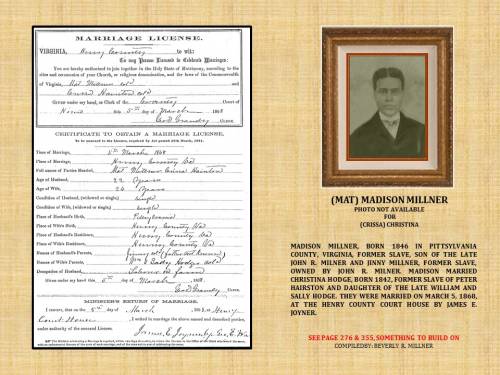 MARRIAGE LICENSE.
VIRGINIA, Henry County to wit:
To any Person Licensed to Celebrate Marriages:
You are hereby authorized to join together in the Holy State of Matrimony, according to the
rites and ceremonies of your Church, or religious denomination, and the laws of the Commonwealth
of Virginia, Mat Millner col'd
and
Given under my hand, as Clerk of the County Court of
this 5th day of March 1868
Clerk
CERTIFICATE TO OBTAIN A MARRIAGE LICENSE,
Time of Marriage, 5th March 1868
Place of Marriage, Henry County Va
Full names of Parties Married, Mat Millner
Age of Husband, 22 Years
Age of Wife, 26 Years
Condition of Husband, (widowed or single) single
Condition of Wife, (widowed or single) single
Place of Husband's Birth, Pittsylvania
Place of Wife's Birth, Henry County Va
Place of Husband's Residence, Henry County Va
Place of Wife's Residence, Henry County Va
Names of Husband's Parents,
Names of Wife's Parents, Hodge col'd
Occupation of Husband, Laborer on farm
Given under my hand this 5th day of March 1868
Clerk
MINISTER'S RETURN OF MARRIAGE.
I certify, that on the 5th day of March 1868, at Henry
Court House I united in marriage the above named and described parties,
under authority of the annexed License.
James E. Joyner
(MAT) MADISON MILLNER
PHOTO NOT AVAILABLE
FOR
(CRISSA) CHRISTINA
MADISON MILLNER, BORN 1846 IN PITTSYLVANIA
COUNTY, VIRGINIA, FORMER SLAVE, SON OF THE LATE
JOHN R. MILNER AND JINNY MILLNER, FORMER SLAVE,
OWNED BY JOHN R. MILNER, MADISON MARRIED
CHRISTINA HODGE, BORN 1842, FORMER SLAVE OF PETER
HAIRSTON AND DAUGHTER OF THE LATE WILLIAM AND
SALLY HODGE. THEY WERE MARRIED ON MARCH 5, 1868,
AT THE HENRY COUNTY COURT HOUSE BY JAMES E.
JOYNER.
SEE PAGE 276 & 355, SOMETHING TO BUILD ON
COMPILEDBY: BEVERLY R. MILLNER